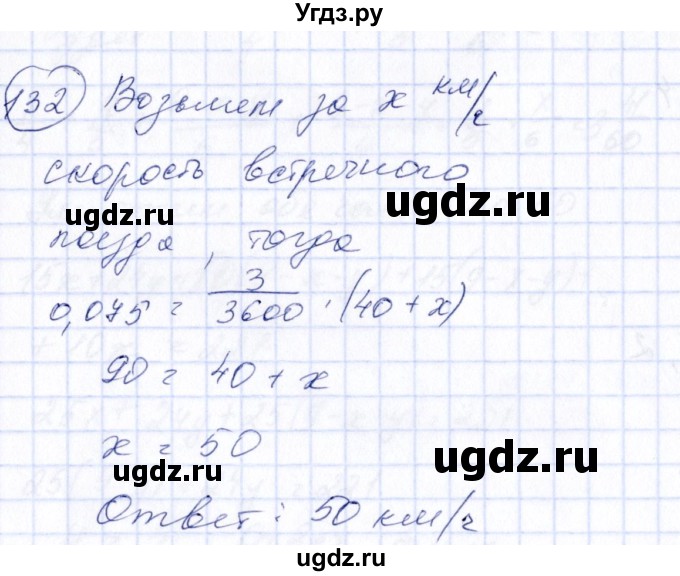 Угдз.ру
132 Возьмем за x км/ч
скорость встречного
ugdz.ru ugdz.ru
поезда, тогда
0,075 = 3/3600 · (40 + x)
90 = 40 + x
x = 50
ugdz.ru ugdz.ru
Ответ: 50 км/ч
ugdz.ru